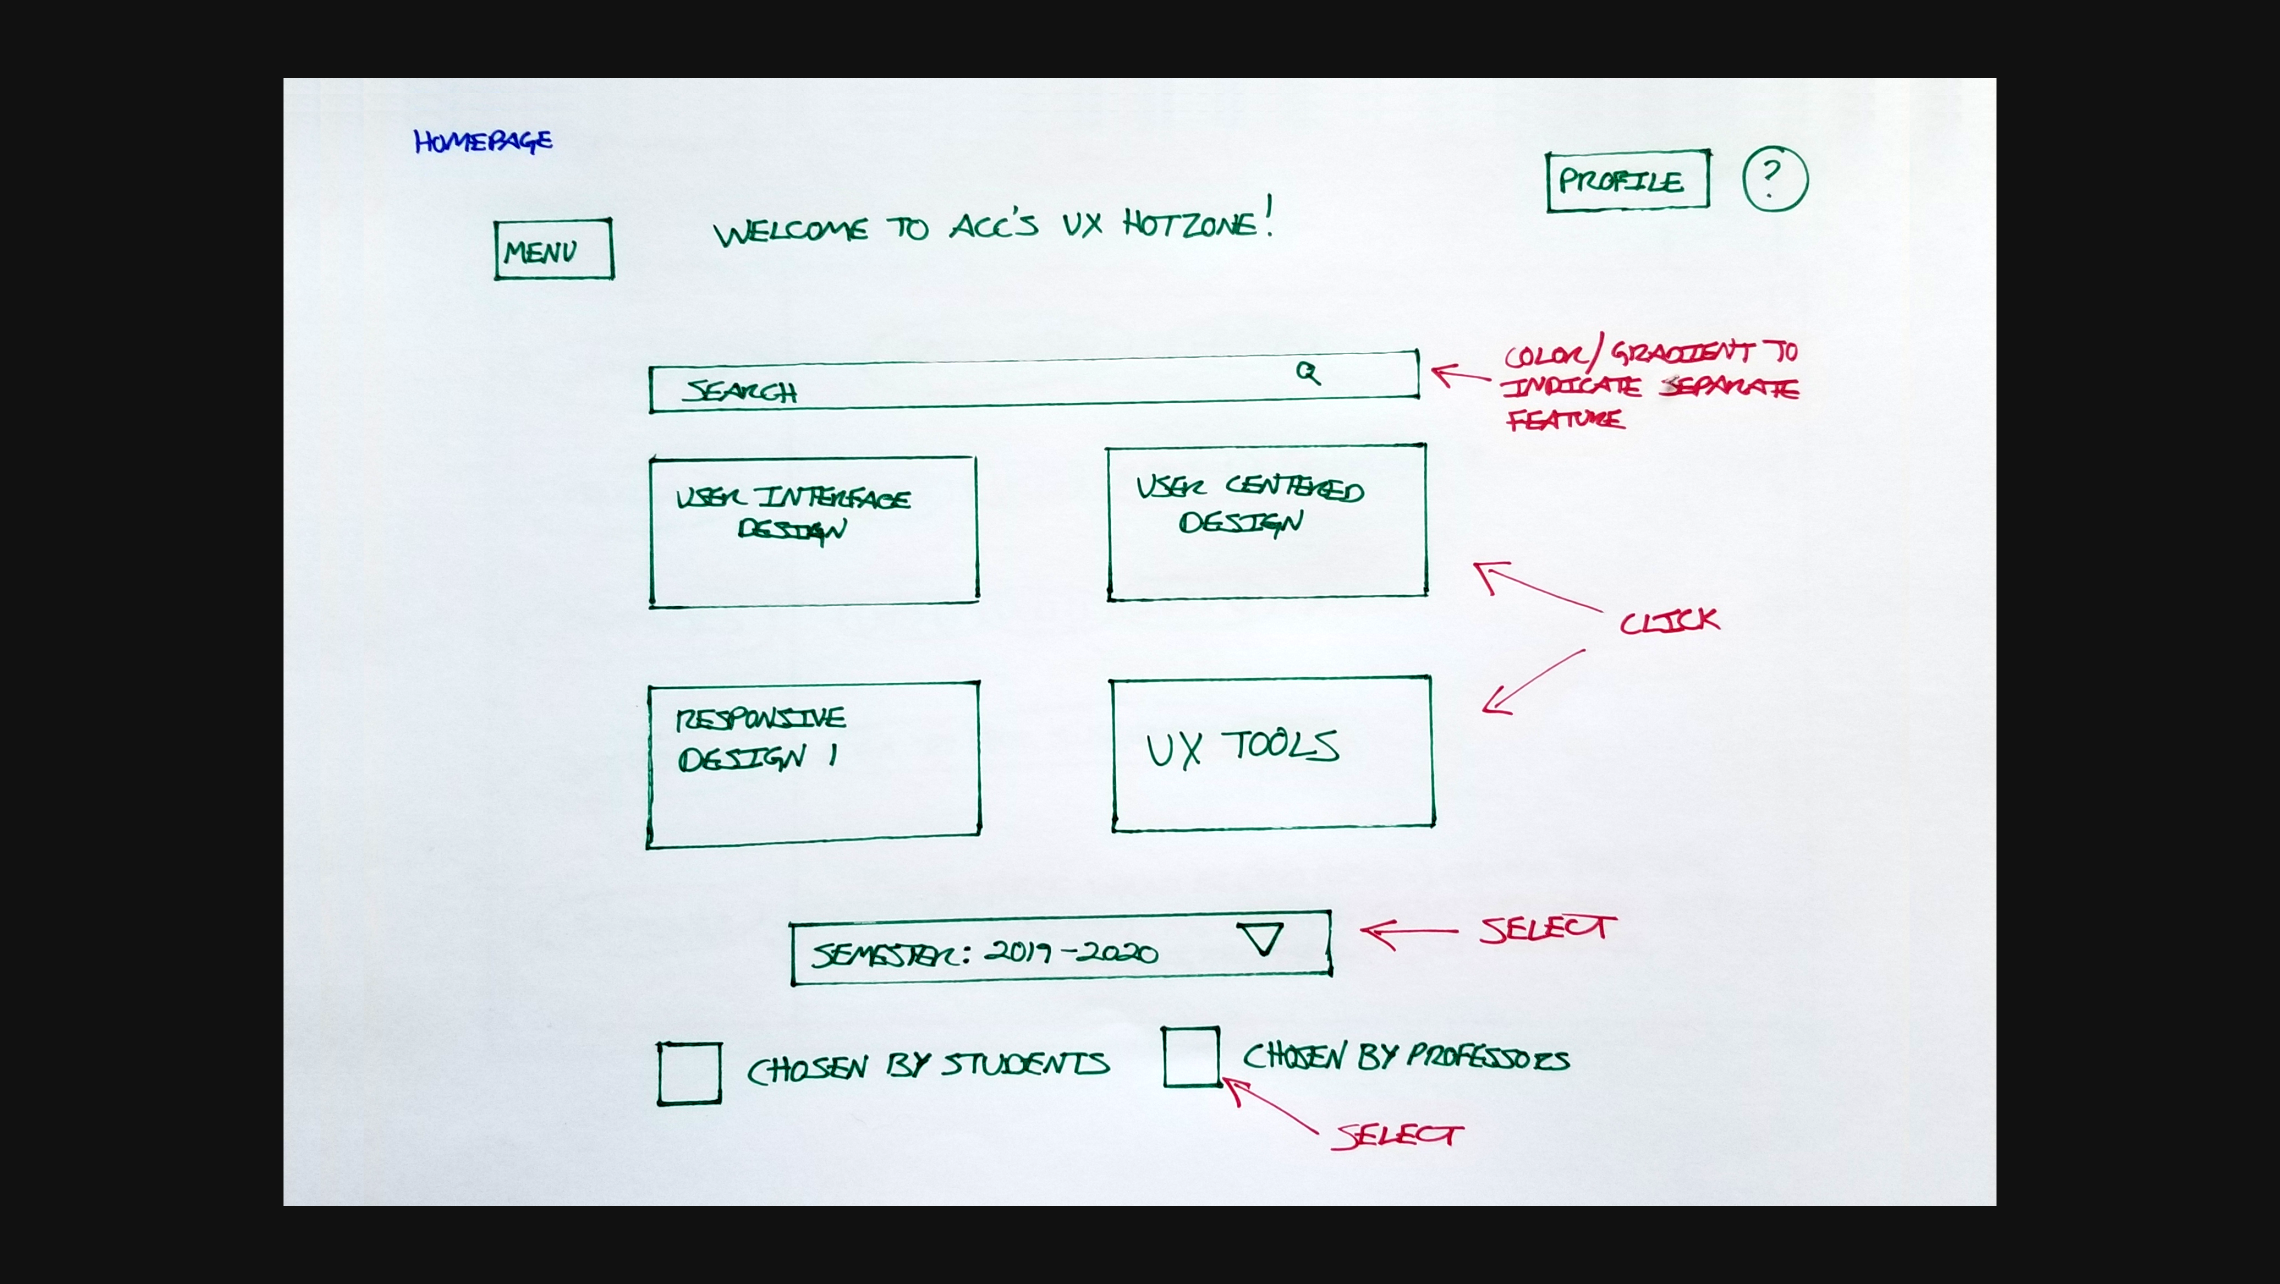 HOMEPAGE
PROFILE ?
MENU
WELCOME TO ACC'S UX HOTZONE!
SEARCH
COLOR/GRADIENT TO
INDICATE SEPARATE
FEATURE
USER INTERFACE
DESIGN
USER CENTERED
DESIGN
CLICK
RESPONSIVE
DESIGN 1
UX TOOLS
SEMESTER: 2019-2020
SELECT
CHOSEN BY STUDENTS
CHOSEN BY PROFESSORS
SELECT